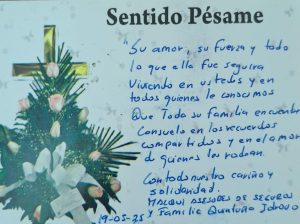 Sentido Pésame
"Su amor, su fuerza y todo
lo que ella fue seguira
Viviendo en ustedes y en
todos quienes le conocimos
Que Toda su familia encuentre
Consuelo en los recuerdos
compartidos y en el amor
de quienes les rodean.
Con todo nuestro cariño y
solidaridad.
MALQUI ASESORES DE SEGUROS
19-05-25 y Familia Quatuña Idrovo